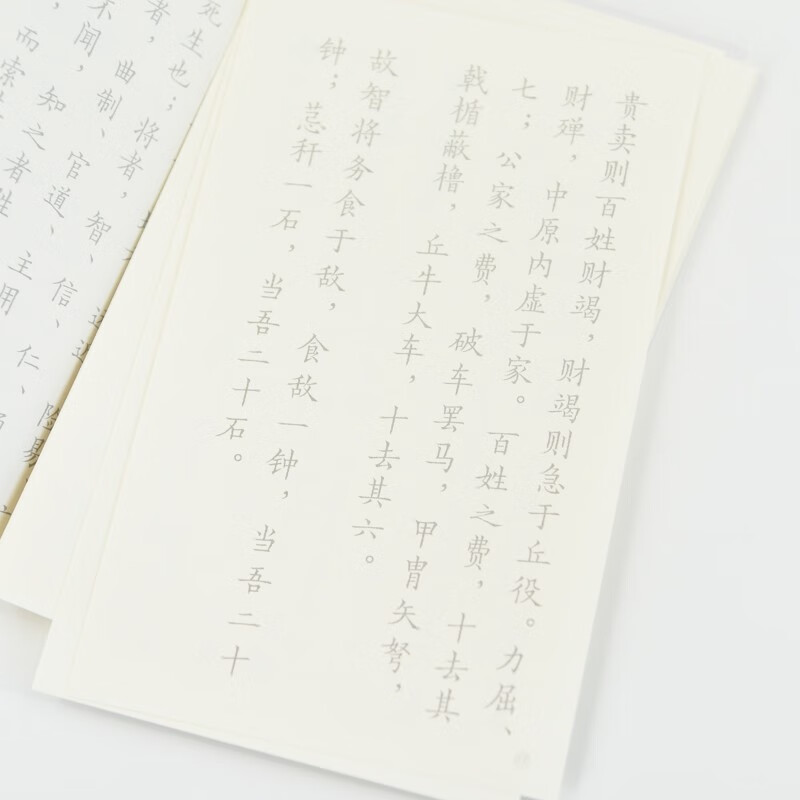 贵卖则百姓财竭，财竭则急于丘役。力屈、
财殚，中原内虚于家。百姓之费，十去其
七；公家之费，破车罢马，甲胄矢弩，
戟楯蔽橹，丘牛大车，十去其六。
故智将务食于敌，食敌一钟，当吾二十
钟；𦮼秆一石，当吾二十石。
死生也；
将者，智、信、仁、
者，曲制、官道、主用
不闻，知之者胜
而索
险易